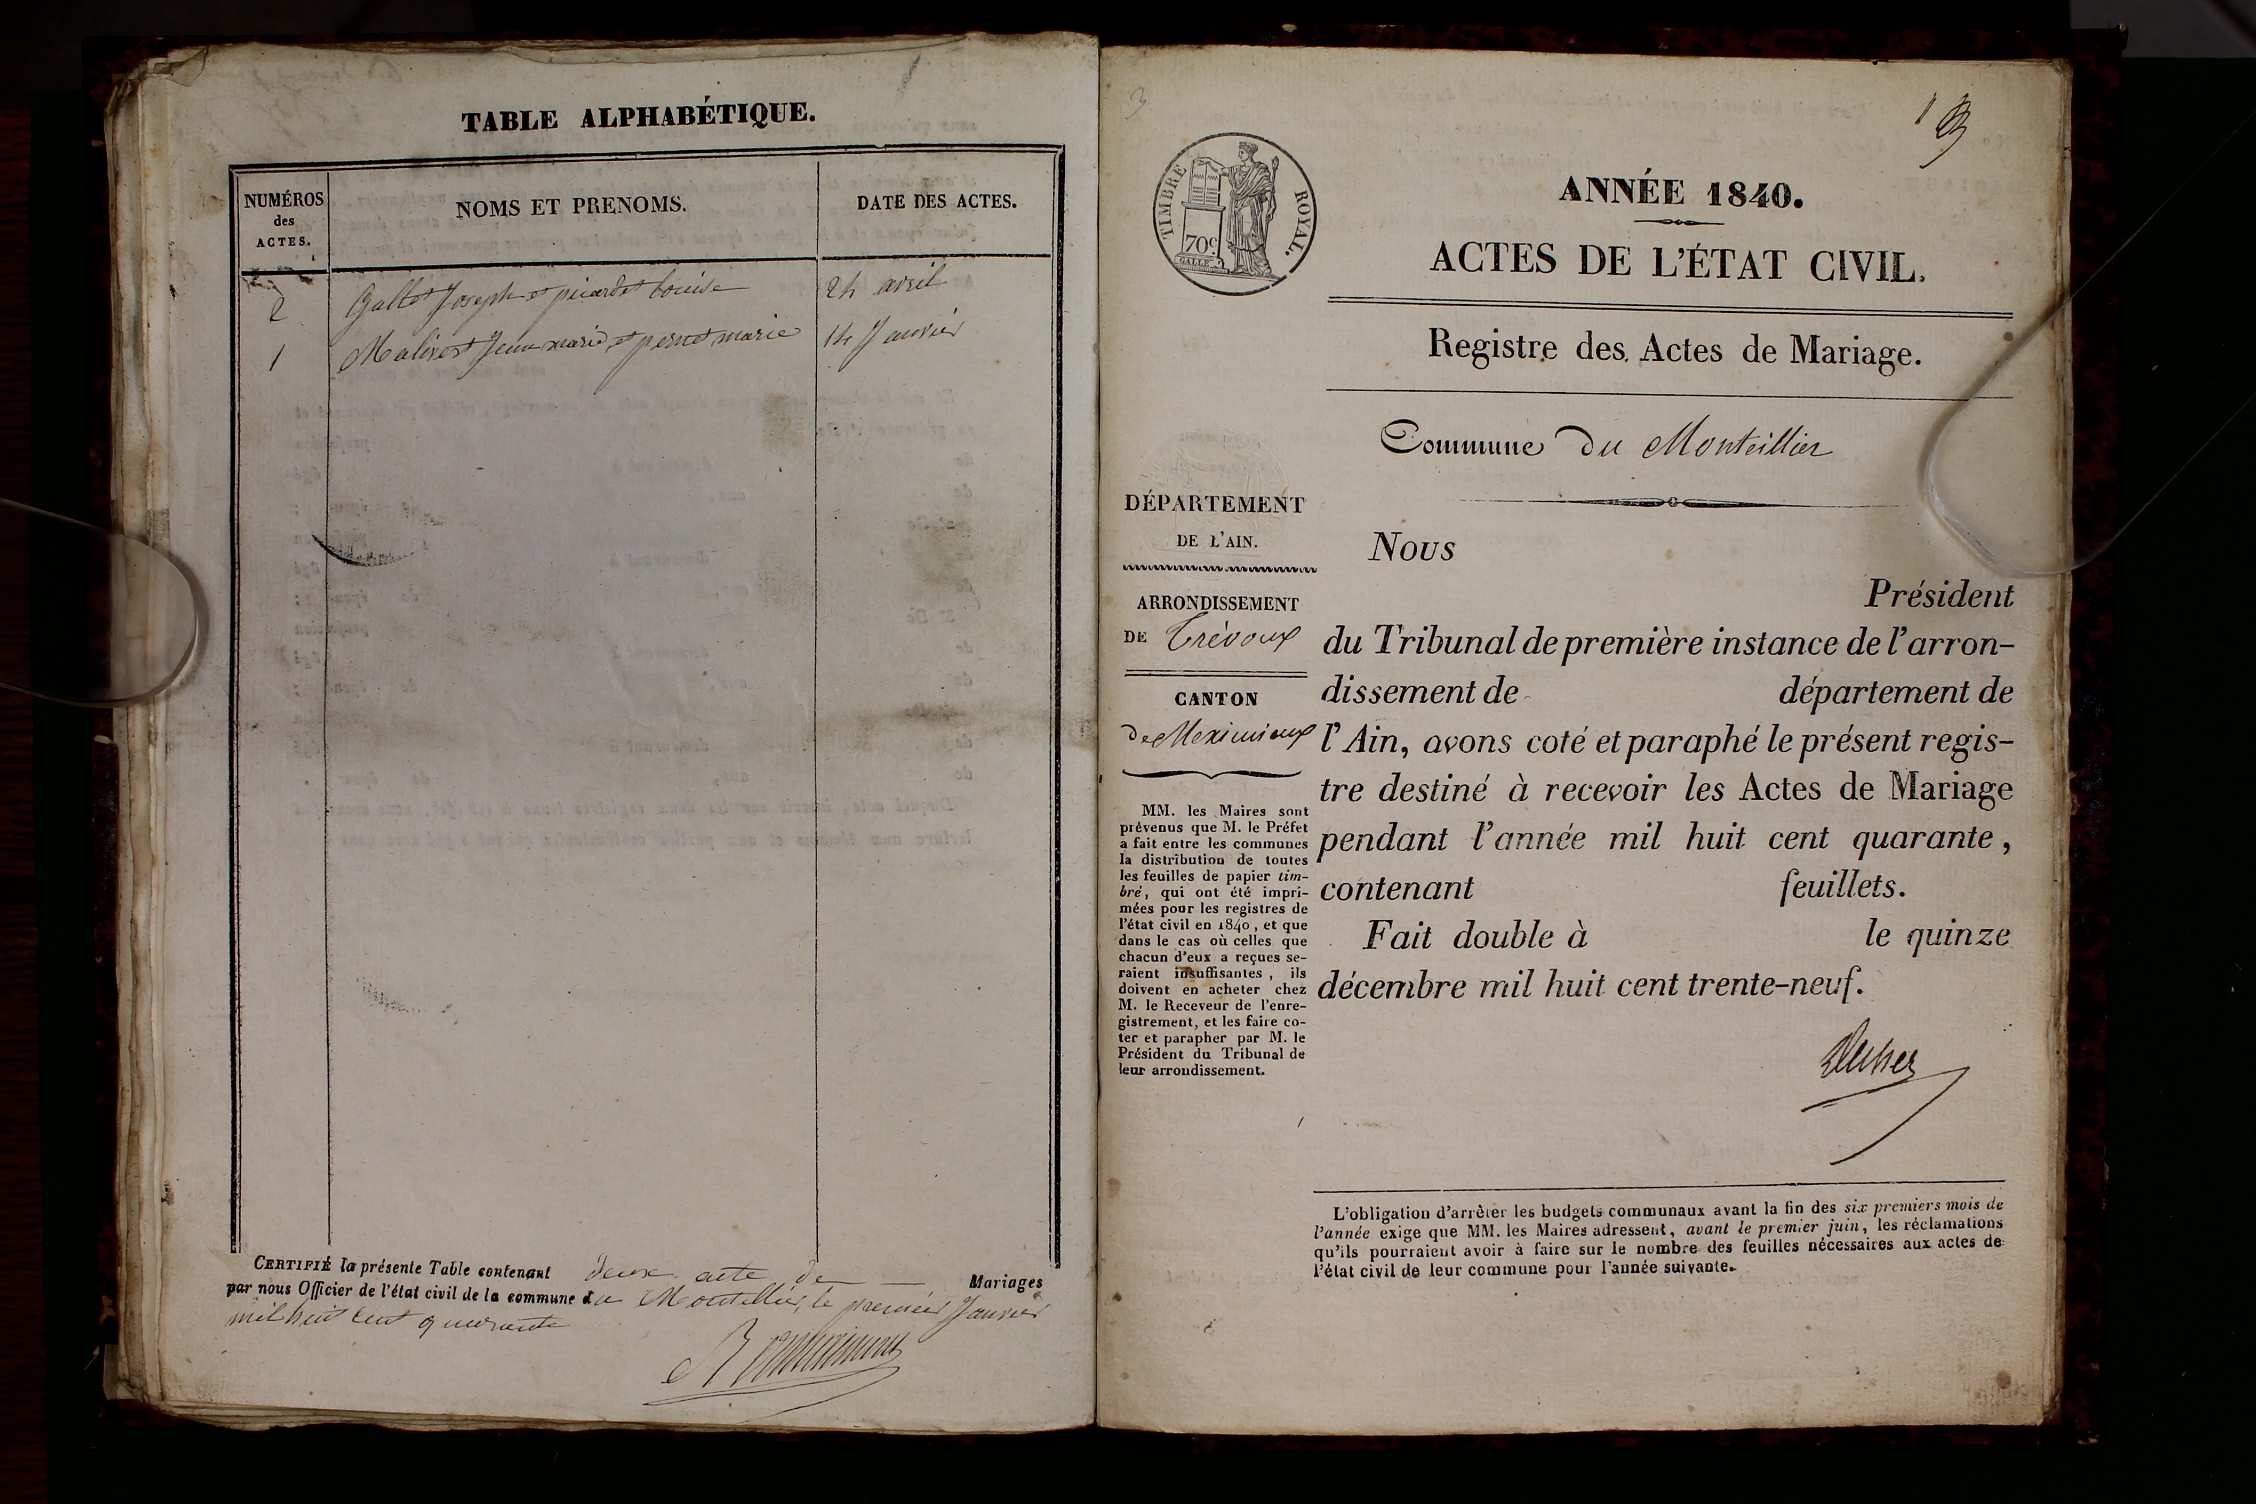 TABLE ALPHABÉTIQUE.
NUMÉROS
des
ACTES.
NOMS ET PRENOMS.
DATE DES ACTES.
2 Gallet Joseph et picardet Louise 24 avril
1 Jean marie et pernet marie 14 Janvier
CERTIFIÉ la présente Table contenant deux acte de — Mariages
par nous Officier de l'état civil de la commune du Montellier, le premier Janvier
mil huit cent quarante
3
1
TIMBRE ROYAL.
70c
GALLE
ANNÉE 1840.
ACTES DE L'ÉTAT CIVIL.
Registre des Actes de Mariage.
Commune du Monteillier
DÉPARTEMENT
DE L'AIN.
ARRONDISSEMENT
DE Trévoux
CANTON
de Meximieux
MM. les Maires sont
prévenus que M. le Préfet
a fait entre les communes
la distribution de toutes
les feuilles de papier tim-
bré, qui ont été impri-
mées pour les registres de
l'état civil en 1840, et que
dans le cas où celles que
chacun d'eux a reçues se-
raient insuffisantes, ils
doivent en acheter chez
M. le Receveur de l'enre-
gistrement, et les faire co-
ter et parapher par M. le
Président du Tribunal de
leur arrondissement.
Nous
Président
du Tribunal de première instance de l'arron-
dissement de département de
l'Ain, avons coté et paraphé le présent regis-
tre destiné à recevoir les Actes de Mariage
pendant l'année mil huit cent quarante,
contenant feuillets.
Fait double à le quinze
décembre mil huit cent trente-neuf.
L'obligation d'arrêter les budgets communaux avant la fin des six premiers mois de
l'année exige que MM. les Maires adressent, avant le premier juin, les réclamations
qu'ils pourraient avoir à faire sur le nombre des feuilles nécessaires aux actes de
l'état civil de leur commune pour l'année suivante.